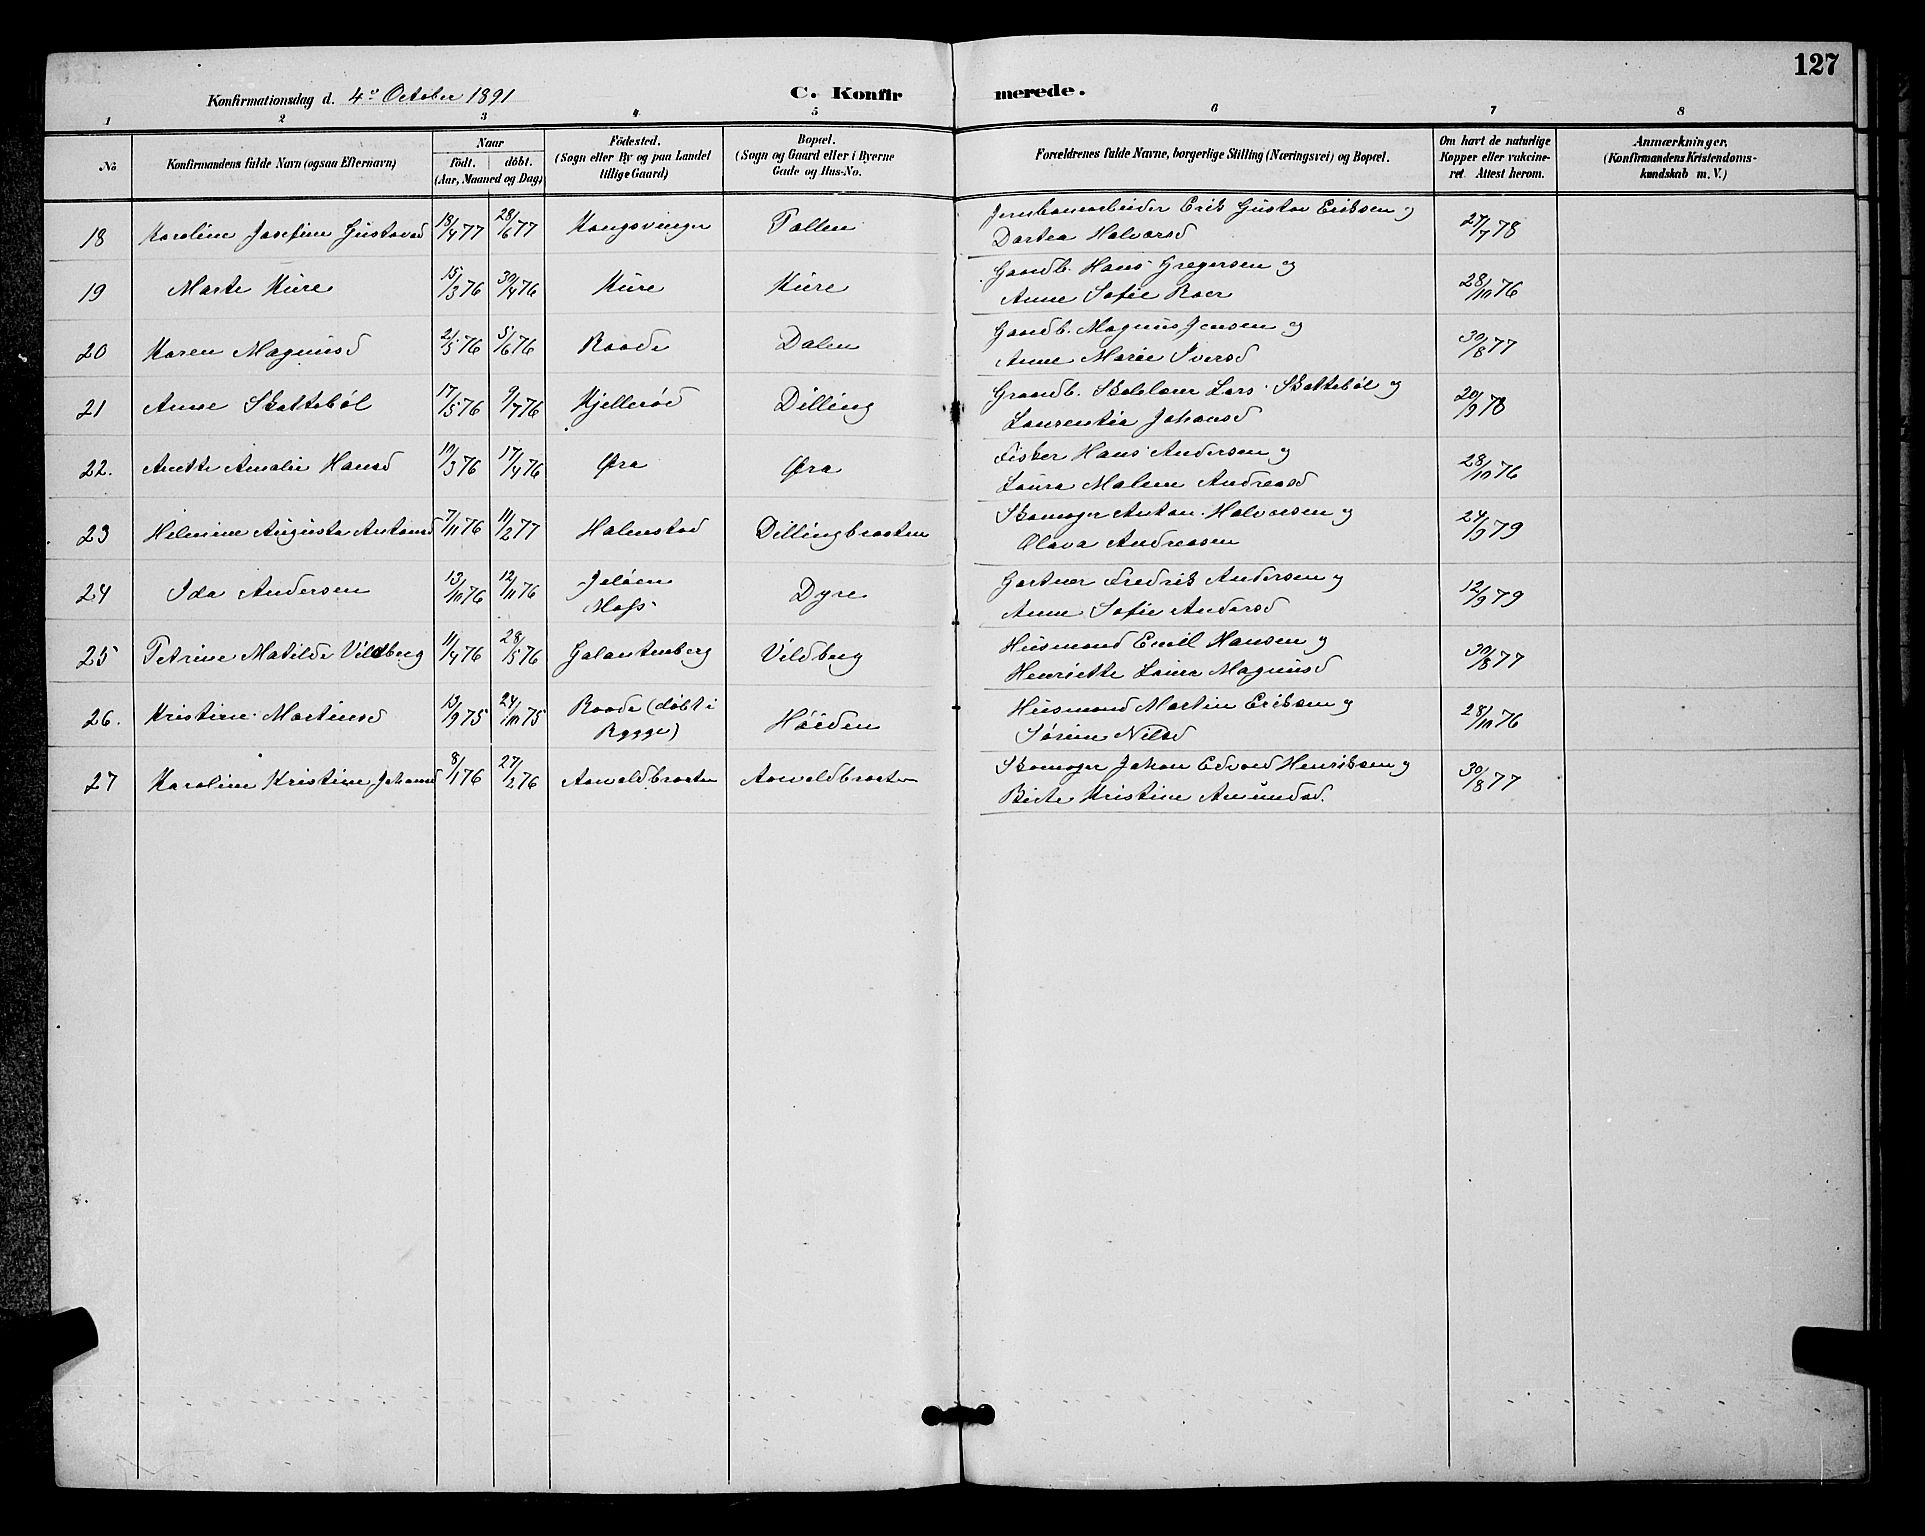 127
Konfirmationsdag d. 4de October 1891 C. Konfir merede.
1 2 3 4 5 6 7 8
No. Konfirmandens fulde Navn (ogsaa Efternavn) Naar født. døbt. (Aar, Maaned og Dag) Födested. (Sogn eller By og paa Landet tillige Gaard) Bopæl. (Sogn og Gaard eller i Byerne Gade og Hus-No. Forældrenes fulde Navne, borgerlige Stilling (Næringsvei) og Bopæl. Om havt de naturlige Kopper eller vakcineret. Attest herom. Anmærkninger. (Konfirmandens Kristendomskundskab m. V.)
18 Karoline Josefine Gustavsd 18/4 77 28/6 77 Kongsvinger Tollen Jernbanearbeider Erik Gustav Eriksen og 27/7 78
Dortea Halvorsd
19 Marte Kure 15/3 76 30/4 76 Kure Kure Gaardb. Hans Gregersen og 28/10 76
Anne Sofie Roer
20 Karen Magnusd 21/3 76 5/6 76 Raade Dalen Gaardb. Magnus Jensen og 30/8 77
Anne Marie Iversd
21 Anne Skattebøl 17/5 76 9/7 76 Kjellerød Dilling Gaardb. Skolelærer Lars Skattebøl og 20/9 78
Laurentia Johansd
22. Anette Amalie Hansd 10/3 76 17/4 76 Øra Øra Fisker Hans Andersen og 28/10 76
Laura Malene Andreasd
23 Helmine Augusta Antonsd 7/11 76 11/2 77 Halmstad Dillingbraaten Skomager Anton Halvorsen og 24/9 79
Olava Andreasen
24 Ida Andersen 13/10 76 12/11 76 Jeløen Dyre Gartner Fredrik Andersen og 12/9 79
Moss Anne Sofie Andersd
25 Petrine Matilde Vildberg 11/4 76 28/5 76 Galantenberg Vildberg Husmand Emil Hansen og 30/8 77
Henriette Laura Magnusd
26. Kristine Martinsd 13/9 75 24/10 75 Raade (døbt i Høiden Husmand Martin Eriksen og 28/10 76
Rygge) Sørine Nilsd
27 Karoline Kristine Johansd 8/1 76 27/2 76 Aavoldbraaten Aavoldbraaten Skomager Johan Edvard Henriksen og 30/8 77
Birte Kristine Amundsd.